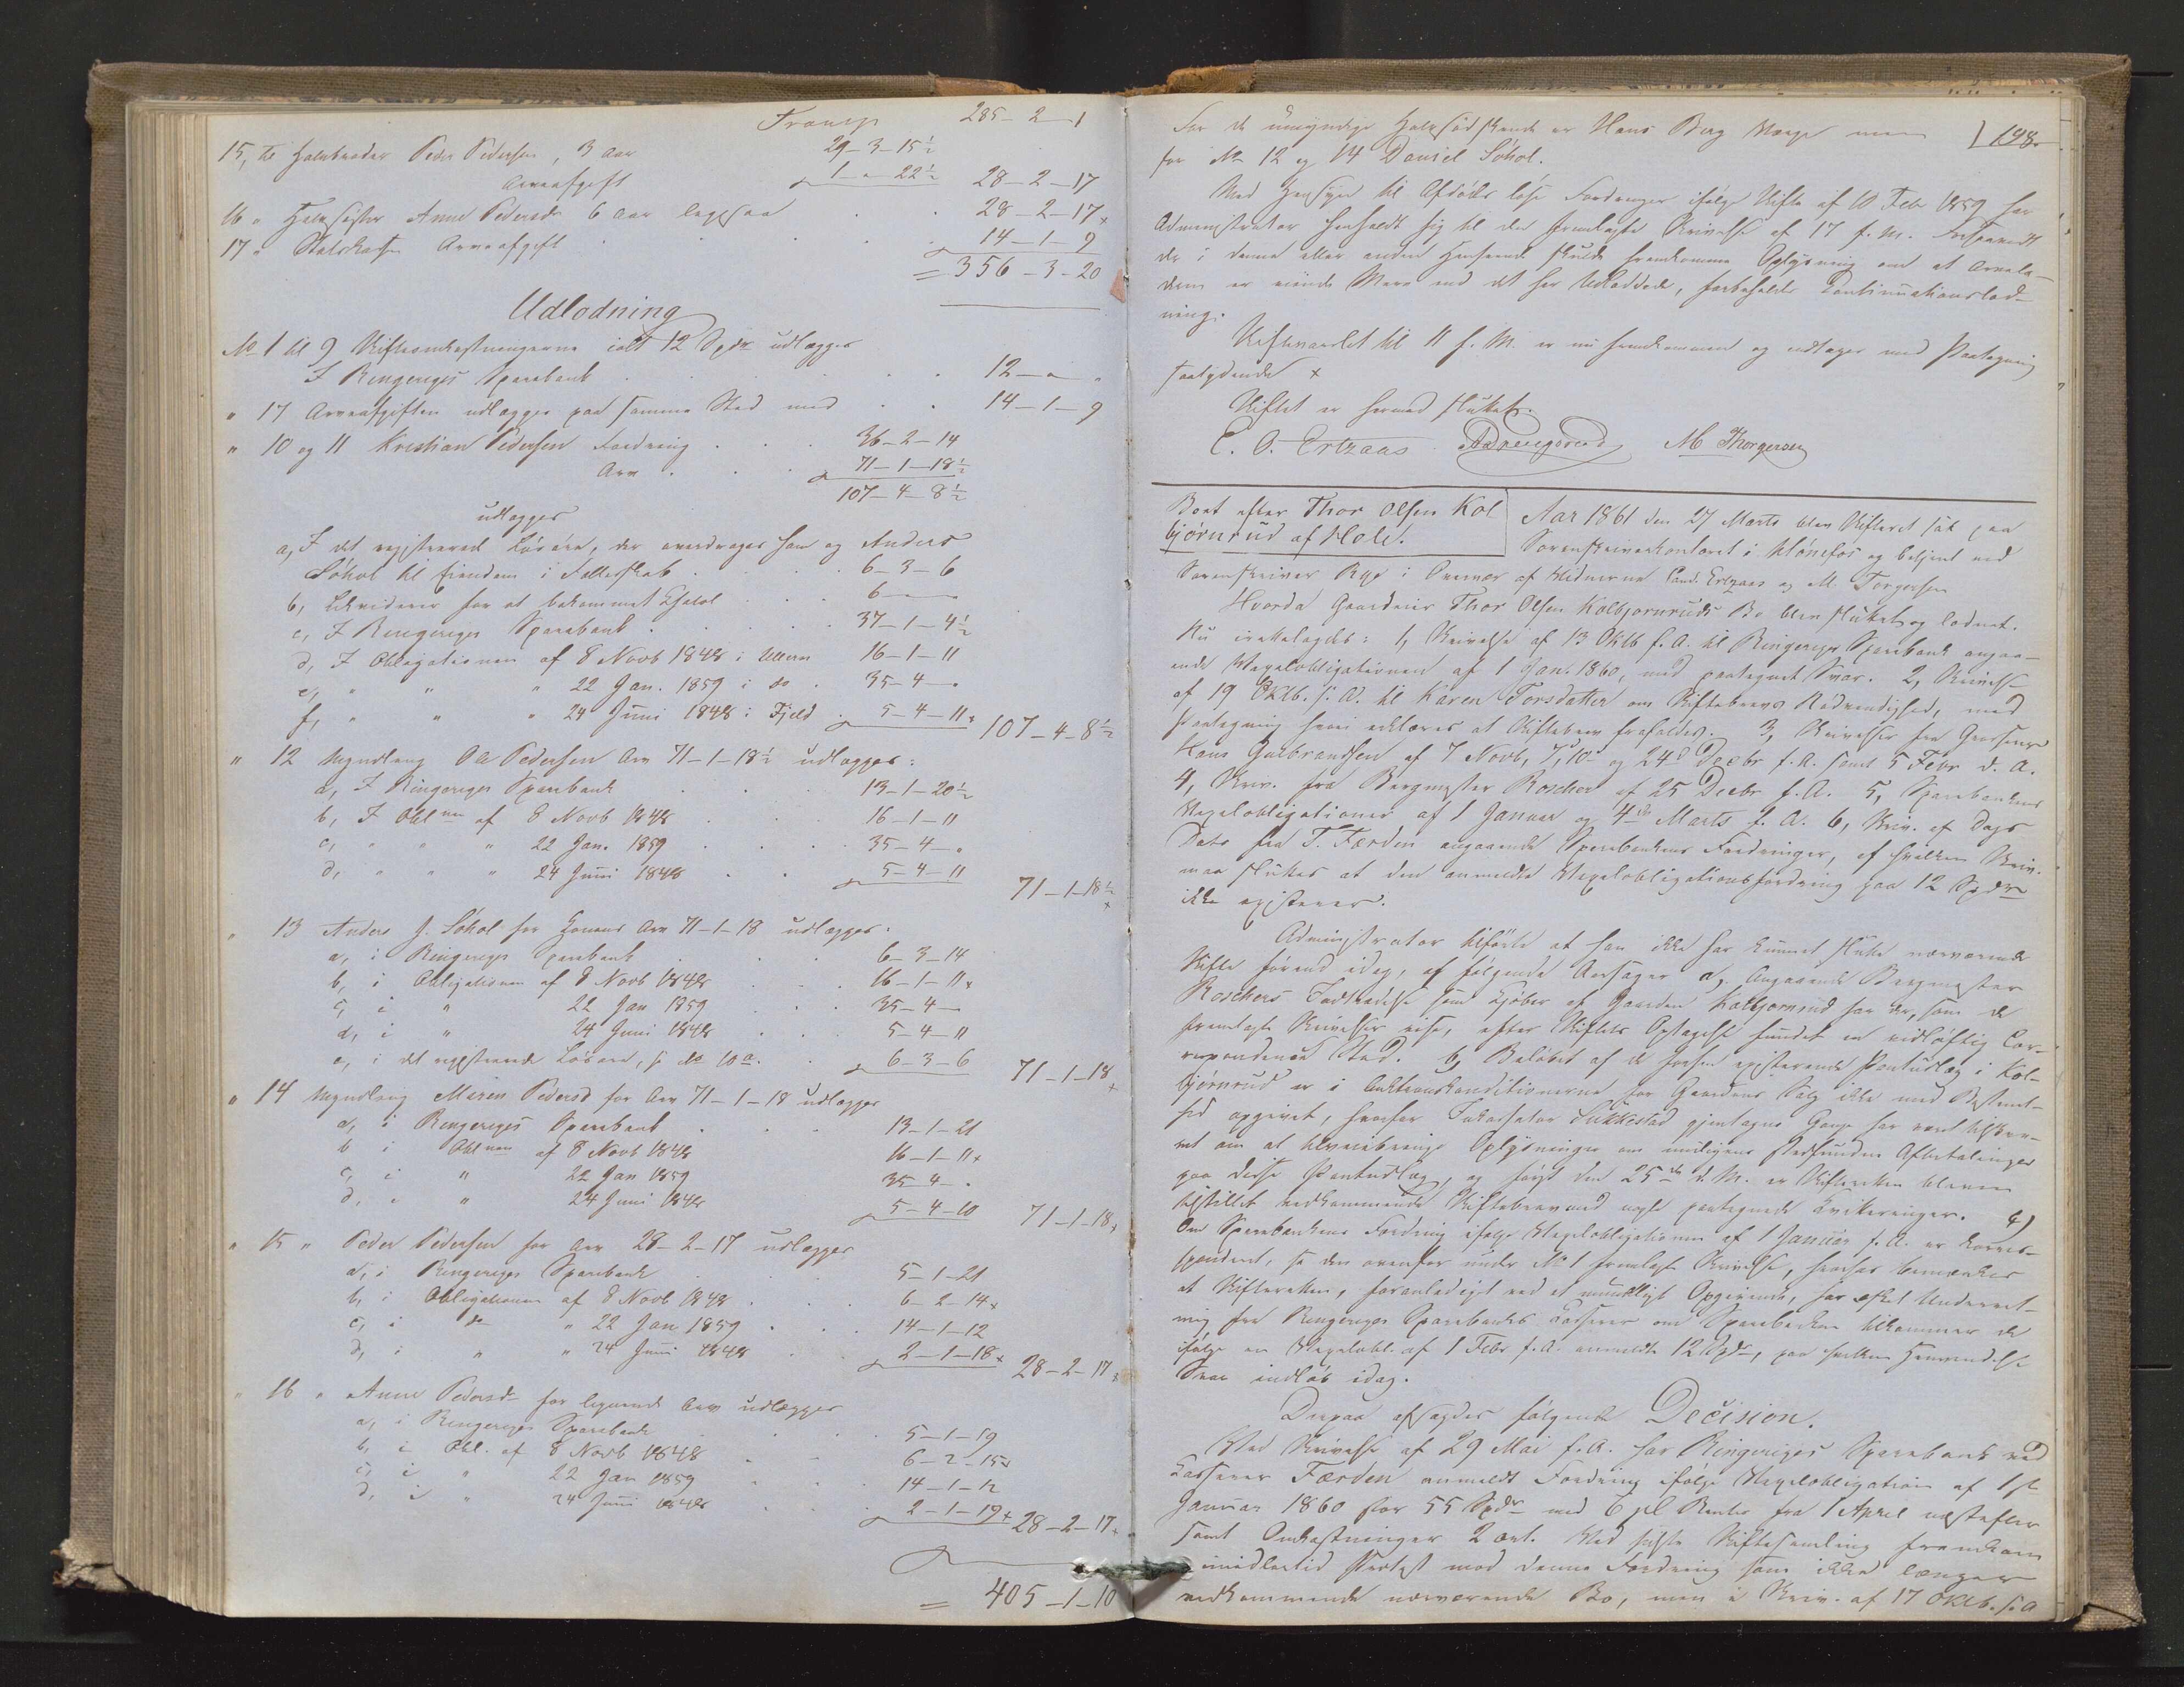 Transp 285-2-1
15, to Halvbroder Peder Pedersen, 3 Aar 29-3-15½
Arveafgift 1-"-22½ 28-2-17
16 " Halvsøster Anne Pedersdr 6 Aar ligesaa 28-2-17
17 " Statskassen Arveafgift 14-1-9
= 356-3-20
Udlodning
No 1 til 9 Skifteomkostningerne ialt 12 Spdr udlægges
I Ringeriges Sparebank 12-"-"
" 17 Arveafgiften udlægges paa samme Sted med 14-1-9
" 10 og 11 Kristian Pedersen Fordring 36-2-14
Arv 71-1-18½
107-4-8½
udlægges
a, I det registrerede Løsøre, der overdrages ham og Anders
Søhol til Eiendom i Fællesskab 6-3-6
b, Likviderer for at bekommet 6
c, I Ringeriges Sparebank 37-1-4½
d, I Obligationen af 8 Novb 1848 i Ullern 16-1-11
e, " " " 22 Jan. 1859 i do 35-4-"
f, " " " 24 Juni 1848 i Fjeld 5-4-11 107-4-8½
" 12 Myndling Ole Pedersen Arv 71-1-18½ udlægges:
a, I Ringeriges Sparebank 13-1-20½
b, I Oblnen af 8 Novb 1848 16-1-11
c, " " " 22 Jan. 1859 35-4-"
d, " " " 24 Juni 1848 5-4-11
71-1-18½
" 13 Anders J. Søhol for Konens Arv 71-1-18 udlægges:
a, i Ringeriges Sparebank 6-3-14
b, i Obligationen af 8 Novb 1848 16-1-11
c, i " 22 Jan 1859 35-4-
d, i " 24 Juni 1848 5-4-11
e, i det registrerede Løsøre, jr No 10 a. 6-3-6 71-1-18
" 14 Myndling Maren Pedersd for Arv 71-1-18 udlægges
a, i Ringeriges Sparebank 13-1-21
b i Oblnen af 8 Novb 1848 16-1-11
c, i " 22 Jan 1859 35-4-"
d, i " 24 Juni 1848 5-4-10 71-1-18
" 15 " Peder Pedersen for Arv 28-2-17 udlægges
a, i Ringeriges Sparebank 5-1-21
b, i Obligationen af 8 Novb 1848 6-2-14
c, i do " 22 Jan 1859 14-1-12
d, i " " 24 Juni 1848 2-1-18 28-2-17
" 16 " Anne Pedersdr for lignende Arv udlægges
a, i Ringeriges Sparebank 5-1-19
b, i Obl. af 8 Novb 1848 6-2-15
c, i " 22 Jan 1859 14-1-12
d, i " 24 Juni 1848 2-1-19 28-2-17
= 405-1-10
198.
For de umyndige Halvsødskende er Hans Berg Værge men
for No 12 og 14 Daniel Søhol.
Med Hensyn til Afdødes løse Fordringer ifølge Skifte af 10 Febr 1859 har
Administrator henholdt sig til den fremlagte Skrivelse af 17 f. M. Forsaavidt
der i denne eller anden Henseende skulde fremkomme Oplysning om at Arvela-
deren er eiende Mere end det her Udloddede, forbeholdes Continuationslod-
ning.
Skiftevarslet til 11 f. M. er nu fremkommen og vedtages med Paategning
saalydende x
Skiftet er hermed sluttet.
C. O. Ertzaas M Thorgersen
Boet efter Thor Olsen Kol
bjørnrud af Hole.
Aar 1861 den 27 Marts blev Skifteret sat paa
Sorenskriverkontoret i Hønefos og betjent ved
Sorenskriver Rye i Overvær af Vidnerne Cand. Ertzaas og M. Torgersen
Hvorda Gaardeier Thor Olsen Kolbjørnruds Bo blev sluttet og loddet.
Nu irettelagdes: 1, Skrivelse af 13 Oktb f. A. til Ringeriges Sparebank angaa-
ende Vexelobligationen af 1 Jan. 1860, med paategnet Svar. 2, Skrivelse
af 19 Oktb. f. A. til Karen Torsdatter om Skiftebrevs Nødvendighed, med
Paategning hvori erklæres at Skiftebrev frafaldes. 3, Skrivelser fra
Hans Gulbrandsen af 7 Novb, 7, 10 og 24d Decbr f. A. samt 5 Febr d. A.
4, Skriv. fra Bergmester Roscher af 25 Decbr f. A. 5, Sparebankens
Vexelobligationer af 1 Januar og 4de Marts f. A. 6, Skriv. af Dags
Dato fra T. Færden angaaende Sparebankens Fordringer, af hvilken Skriv.
maa sluttes at den anmeldte Vexelobligationsfordring paa 12 Spdr
ikke existerer.
Administrator tilførte at han ikke har kunnet slutte nærværende
Skifte førend idag, af følgende Aarsager a). Angaaende Bergmester
Roschers Indtrædelse som Kjøber af Gaarden Kolbjørnrud har der, som de
fremlagte Skrivelser vise, efter Skiftets Optagelse fundet en vidløftig Cor-
respondence Sted. b, Beløbet af de forhen existerende Pantudlæg i Kol-
bjørnrud er i Auktionskonditionerne for Gaardens Salg ikke med Bestemt-
hed opgivet, hvorfor Inkassator Sukkestad gjentagne Gange har været tilskre-
vet om at tilveiebringe Oplysninger om muligens stedfundne Afbetalinger
paa disse Pantudlæg, og først den 25de d. M. er Skifteretten bleven
tilstillet vedkommende Skiftebrev med nogle paategnede Kvitteringer. c)
Om Sparebankens Fordring ifølge Vexelobligationen af 1 Januar f. A. er korre-
sponderet, se den ovenfor under No 1 fremlagte Skrivelse, hvorhos bemærkes
at Skifteretten, foranlediget ved et mundtligt Opgivende, har æsket Underret-
ning fra Ringeriges Sparebanks Kasserer om Sparebanken tilkommer de
ifølge en Vexelobl. af 1 Febr f. A. anmeldte 12 Spdr, paa hvilken Henvendelse
Svar indløb idag.
Derpaa afsagdes følgende Decision.
Ved Skrivelse af 29 Mai f. A. har Ringeriges Sparebank ved
Kasserer Færden anmeldt Fordring ifølge Vexelobligation af 1ste
Januar 1860 stor 55 Spdr med 6 pCt Renter fra 1 April næstefter
samt Omkostninger 2 ort. Ved sidste Skiftesamling fremkom
imidlertid Protest mod denne Fordring som ikke længer
vedkommende nærværende Bo, men i Skriv. af 17 Oktb. f. A